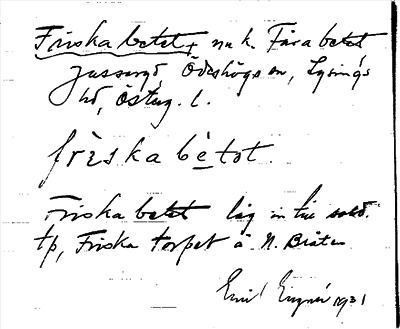 Friska betet, nu k. Fåra betet
Jussergö Ödeshögs sn, Lysings
hd, Östug. l.
frèska bètot.
Friska betet låg in till sold.
tp, Friska torpet å N. Bråten
Emil 1931